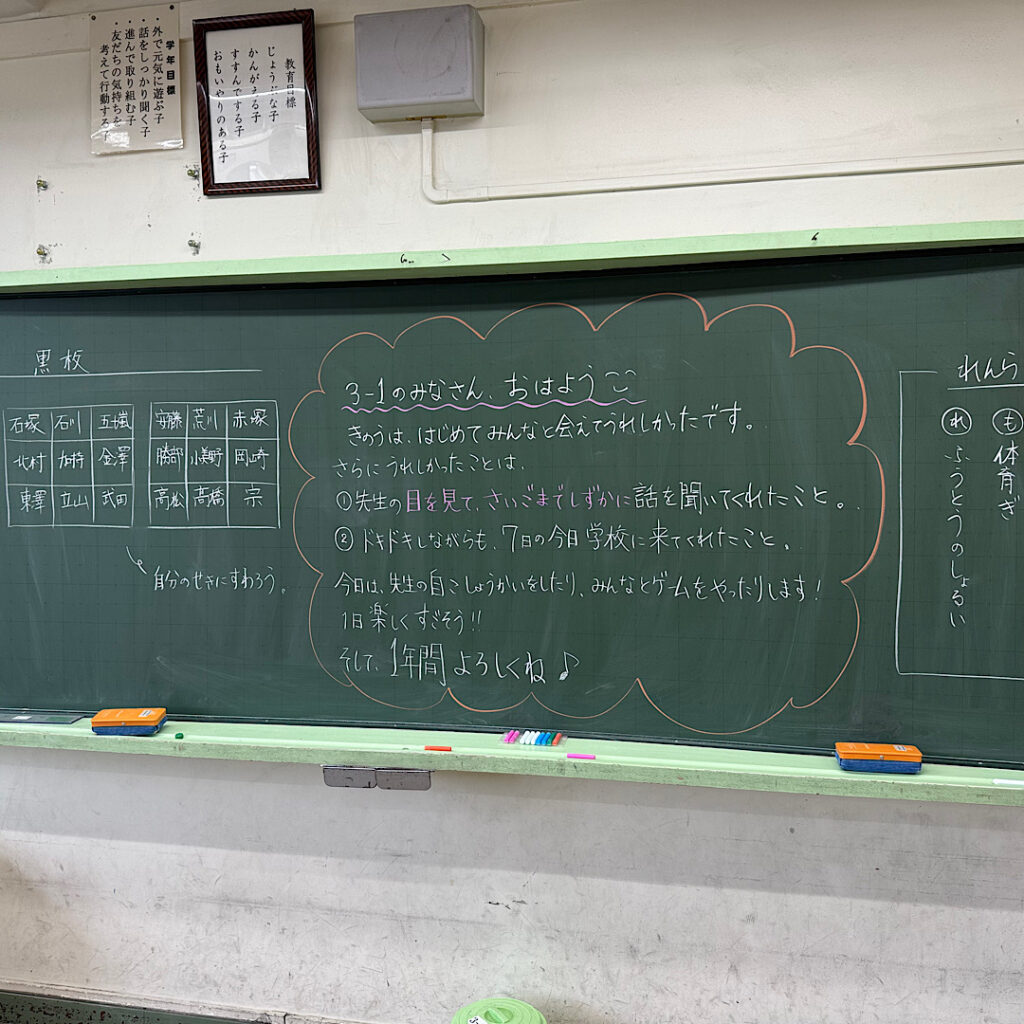 学年目標
・外で元気に遊ぶ子
・話をしっかり聞く子
・進んで取り組む子
・友だちの気持ちを
考えて行動する子
教育目標
じょうぶな子
かんがえる子
すすんでする子
おもいやりのある子
黒板
石塚 石川 五十嵐 安藤 荒川 赤塚
北村 加持 金澤 勝部 小美野 岡崎
東澤 立山 武田 高松 高橋 宗
自分のせきにすわろう。
3-1のみなさん、おはよう
きのうは、はじめてみんなと会えてうれしかったです。
さらにうれしかったことは、
①先生の目を見て、さいごまでしずかに話を聞いてくれたこと。
②ドキドキしながらも、7日の今日学校に来てくれたこと。
今日は、先生の自こしょうかいをしたり、みんなとゲームをやったりします!
1日楽しくすごそう!!
そして、1年間よろしくね♪
れんら
も 体育ぎ
れ ふうとうのしょるい